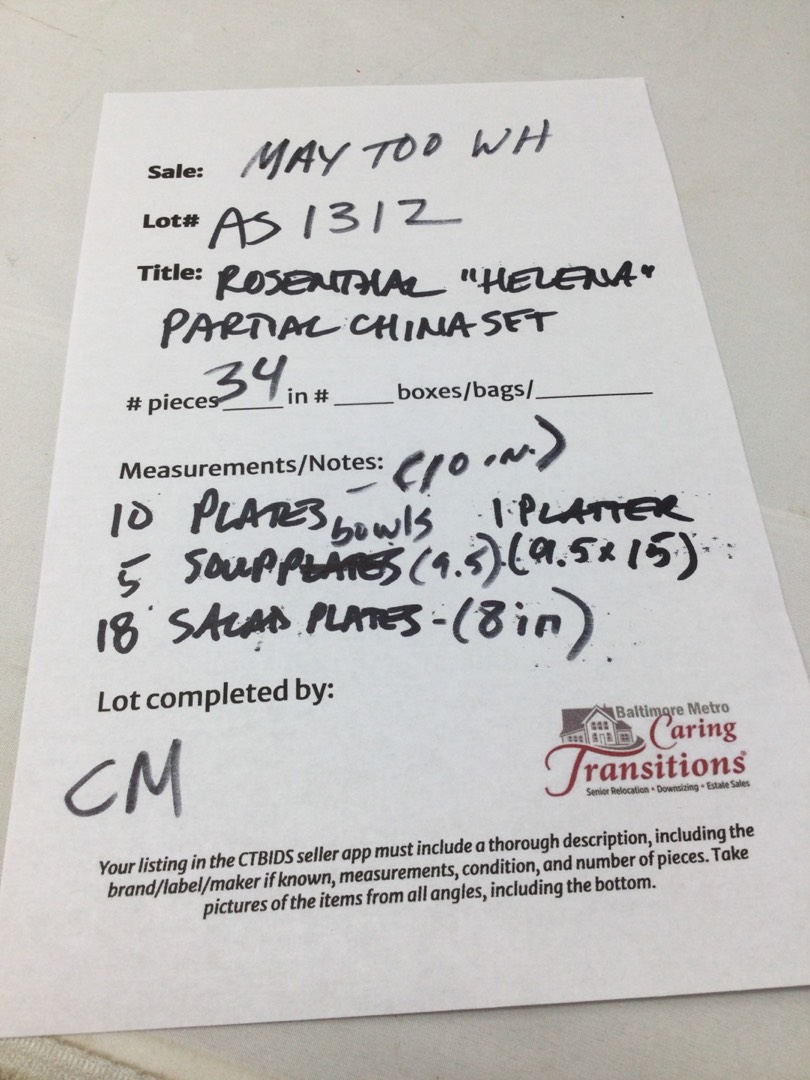 Sale: MAY TOO WH
Lot# AS 1312
Title: ROSENTHAL "HELENA"
PARTIAL CHINA SET
# pieces 34 in # ____ boxes/bags/__________
Measurements/Notes: (10 in.)
10 PLATES - 1 PLATTER
bowls
5 SOUP PLATES (9.5) (9.5 x 15)
18 SALAD PLATES - (8 in)
Lot completed by:
CM
Baltimore Metro
Caring
Transitions
Senior Relocation • Downsizing • Estate Sales
Your listing in the CTBIDS seller app must include a thorough description, including the
brand/label/maker if known, measurements, condition, and number of pieces. Take
pictures of the items from all angles, including the bottom.